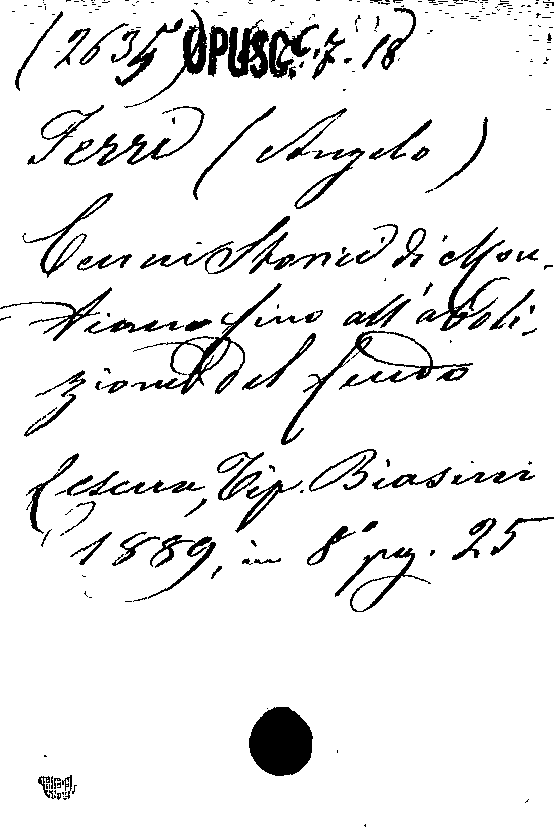 (2635) OPUSC. C. 7. 18
Ferri (Angelo)
Cenni Storici di Mon-
tiano fino all'aboli-
zione del feudo
Cesena, Tip. Biasini
1889, in 8° pag. 25